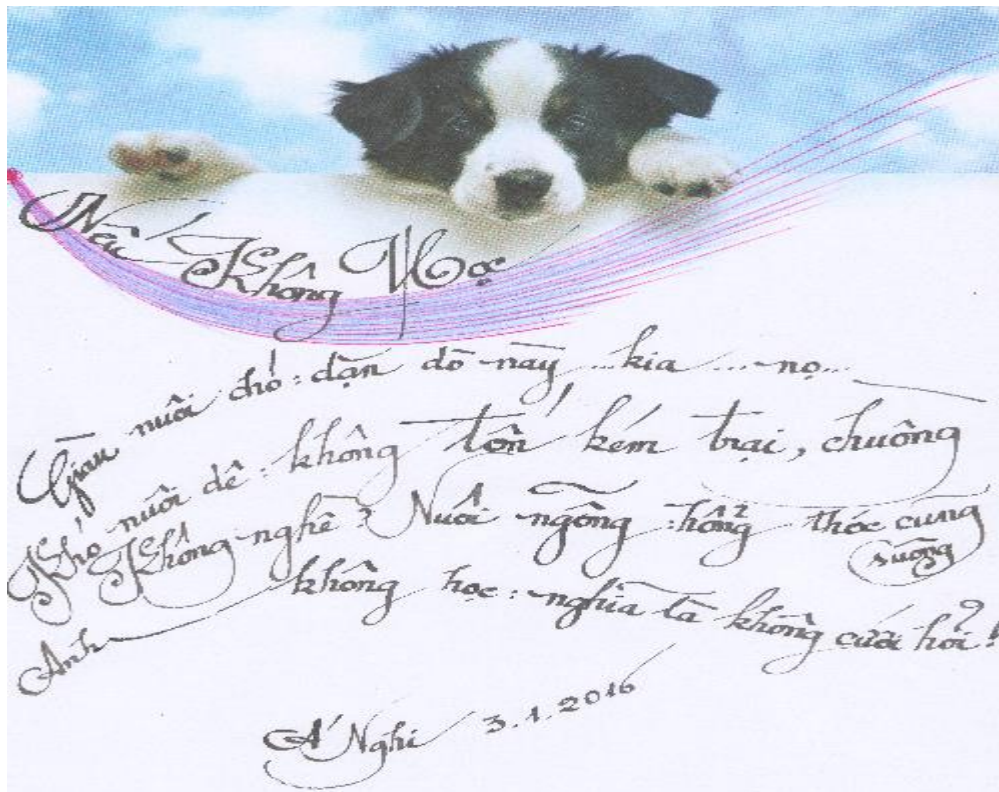 Nếu Không Học
Giàu nuôi chó: dặn dò này... kia... nọ...
Khó nuôi dê: không tốn kém trại, chuồng
Không nghề? Nuôi ngỗng: hổng thóc cũng
sướng
Anh không học: nghĩa là không cưới hỏi!
Á Nghi 3.1.2016